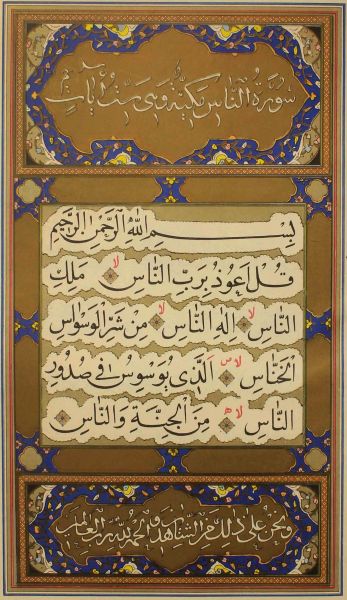 سورة الناس مكية وهي ست آيات
بِسْمِ اللهِ الرَّحْمٰنِ الرَّحِيمِ
قُلْ اَعُوذُ بِرَبِّ النَّاسِ لا مَلِكِ
النَّاسِ لا اِلٰهِ النَّاسِ لا مِنْ شَرِّ الْوَسْوَاسِ
الْخَنَّاسِ لا ص اَلَّذِى يُوَسْوِسُ فِى صُدُورِ
النَّاسِ لا مِنَ الْجِنَّةِ وَالنَّاسِ
ونحن على ذلك من الشاهدين والحمد لله رب العالمين